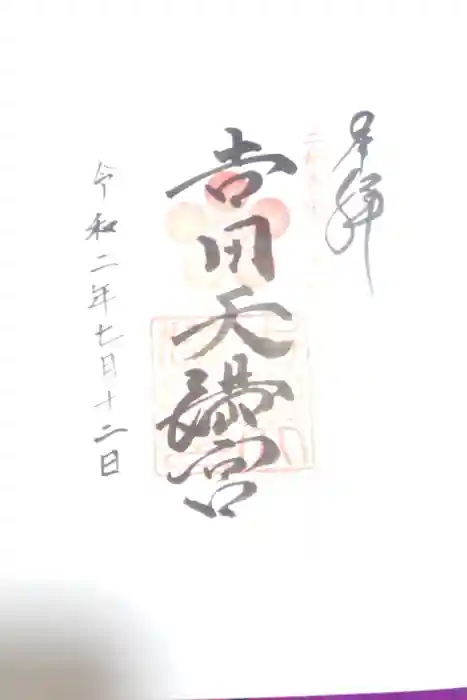 奉拝
吉田天満宮
令和二年七月十二日